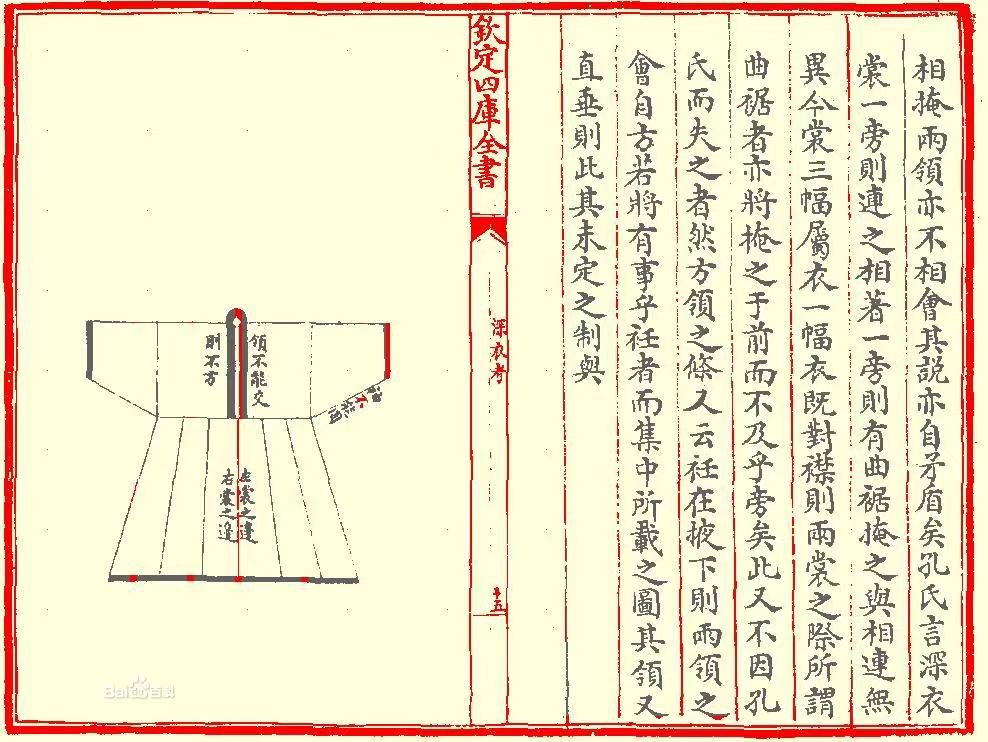 相掩兩領亦不相會其説亦自矛盾矣孔氏言深衣
裳一旁則連之相著一旁則有曲裾掩之與相連無
異今裳三幅屬衣一幅衣既對襟則兩裳之際所謂
曲裾者亦將掩之于前而不及乎旁矣此又不因孔
氏而失之者然方領之條又云衽在掖下則兩領之
會自方若將有事乎衽者而集中所載之圖其領又
直垂則此其未定之制與
欽定四庫全書
深衣考
十五
領不能交
則不方
袖不能圓
左裳之邊
右裳之邊
Baidu百科